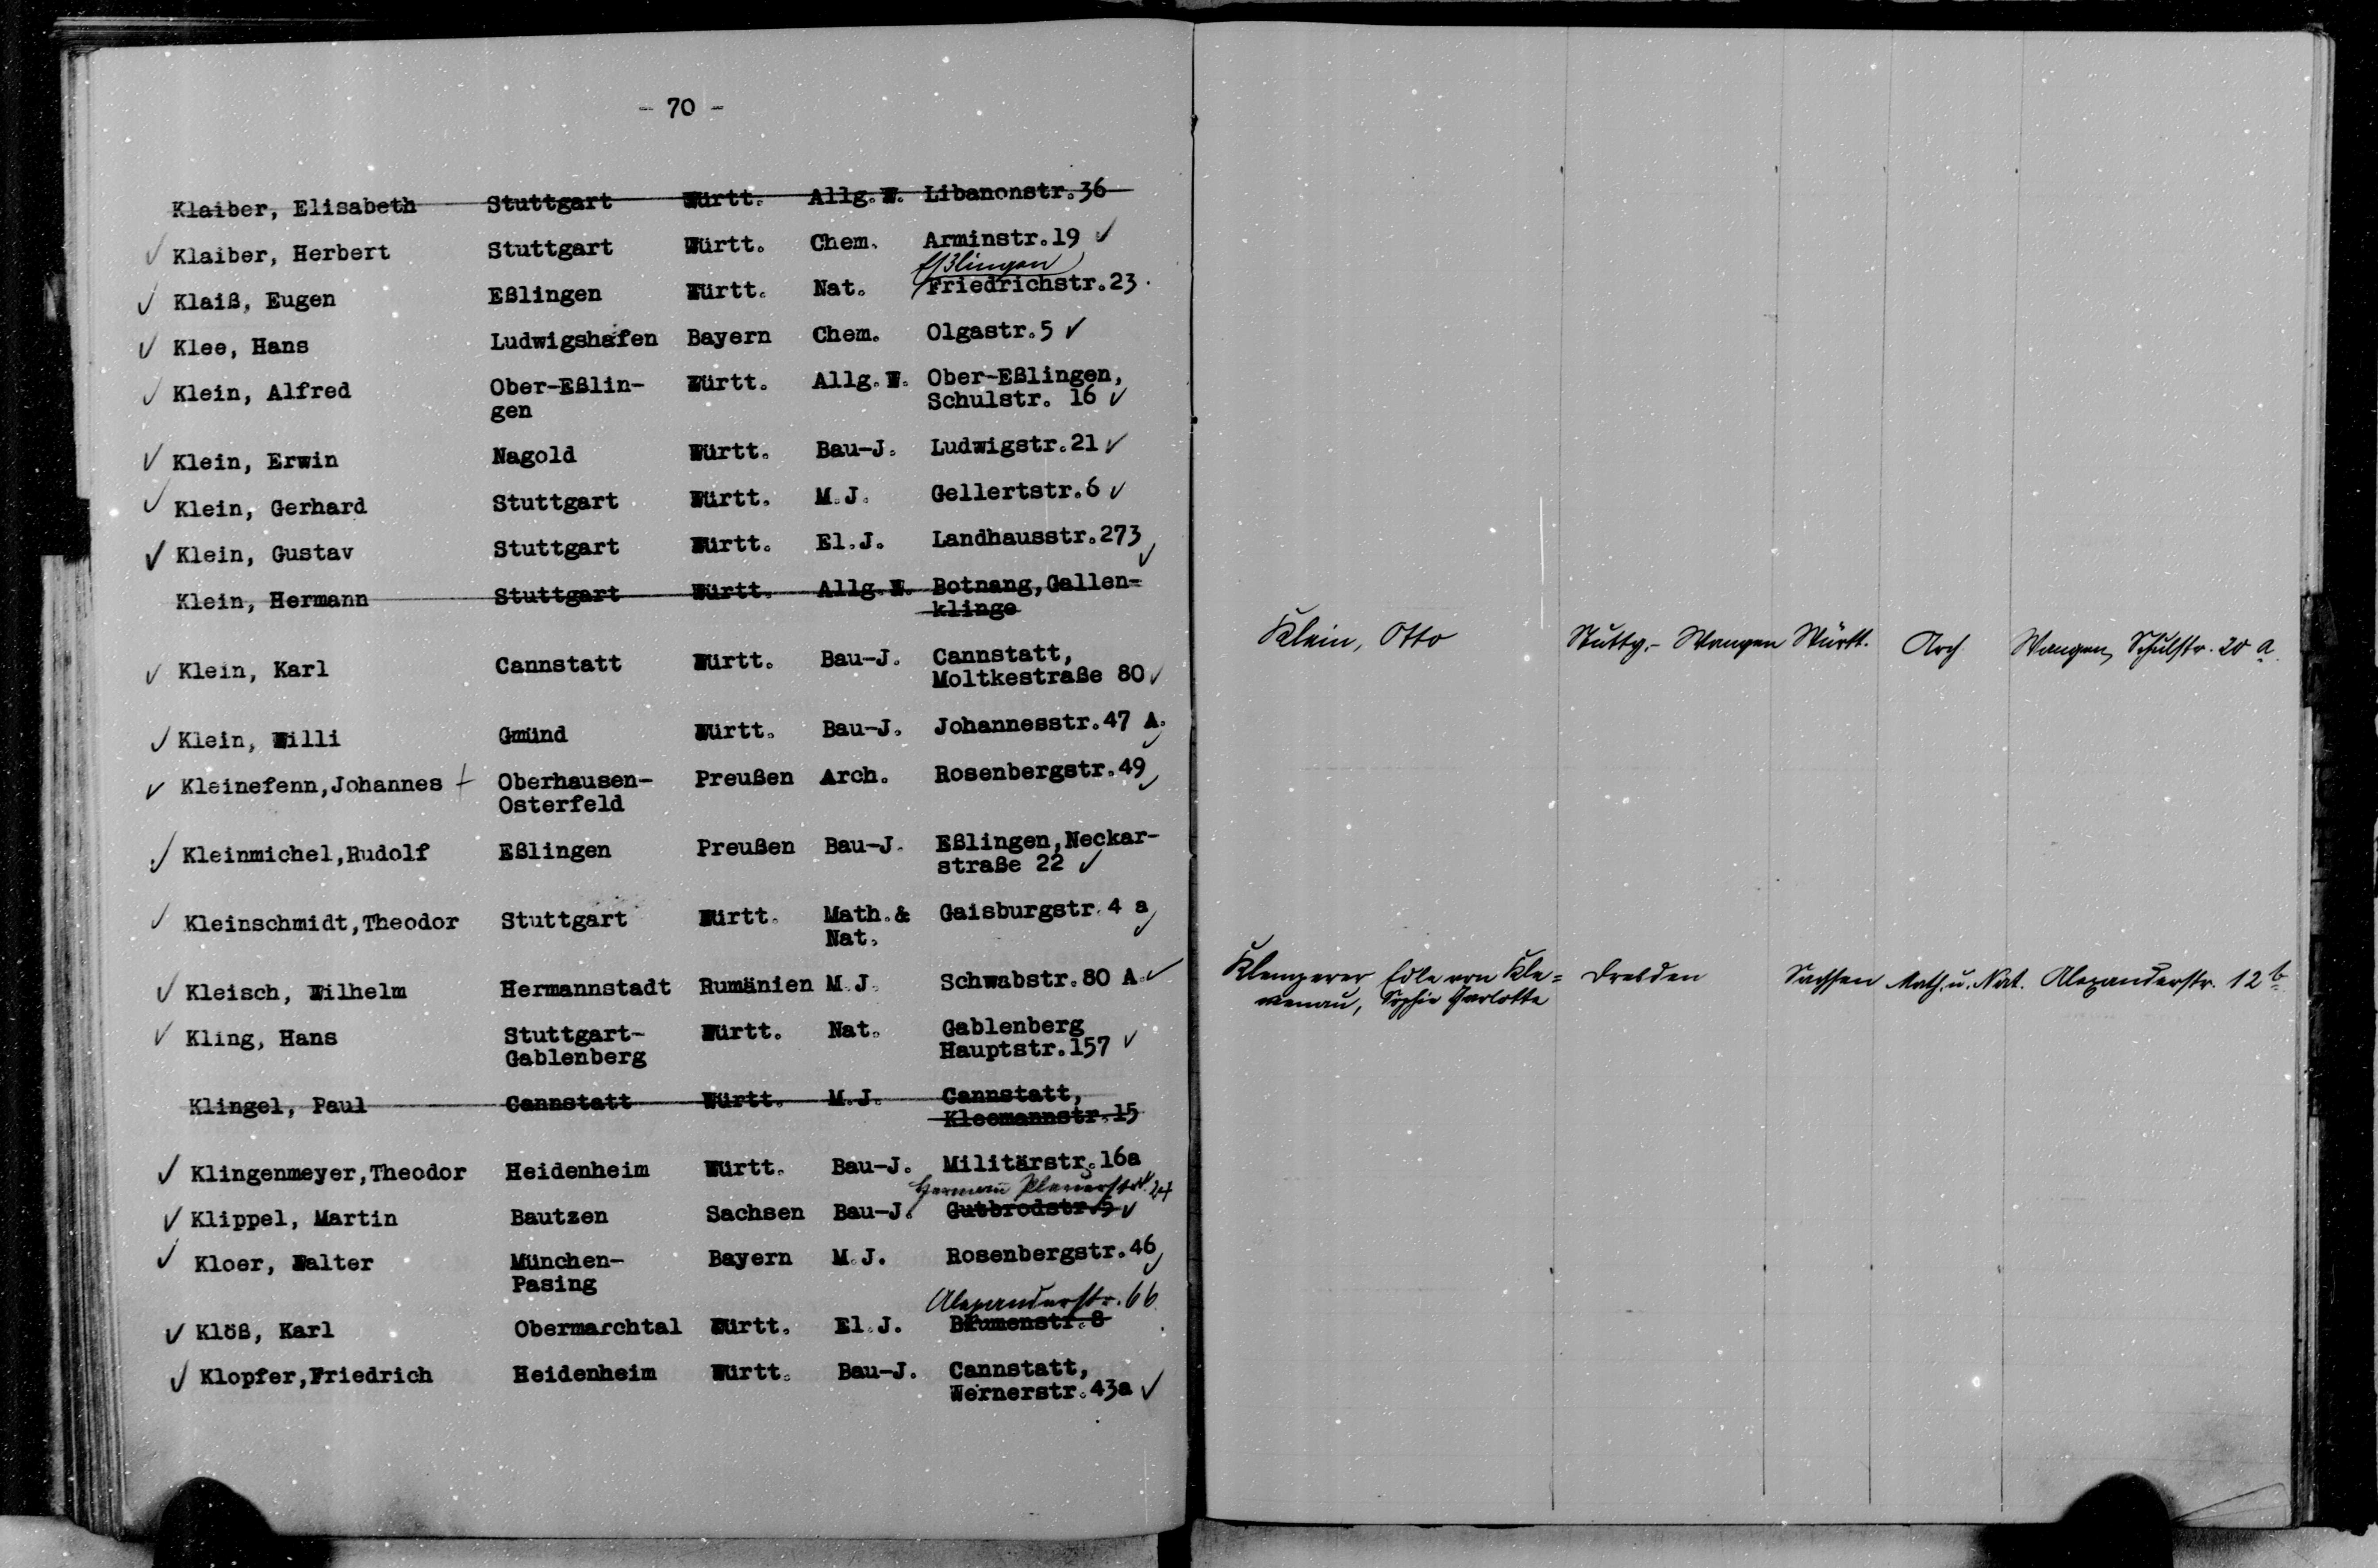 - 70 -
Klaiber, Elisabeth Stuttgart Württ. Allg.W. Libanonstr.36
Klaiber, Herbert Stuttgart Württ. Chem. Arminstr.19
Eßlingen
Klaiß, Eugen Eßlingen Württ. Nat. Friedrichstr.23
Klee, Hans Ludwigshafen Bayern Chem. Olgastr.5
Klein, Alfred Ober-Eßlin- Württ. Allg.W. Ober-Eßlingen,
gen Schulstr. 16
Klein, Erwin Nagold Württ. Bau-J. Ludwigstr.21
Klein, Gerhard Stuttgart Württ. M.J. Gellertstr.6
Klein, Gustav Stuttgart Württ. El.J. Landhausstr.273
Klein, Hermann Stuttgart Württ. Allg.W. Botnang,Gallen-
klinge
Klein, Karl Cannstatt Württ. Bau-J. Cannstatt,
Moltkestraße 80
Klein, Willi Gmünd Württ. Bau-J. Johannesstr.47 A.
Kleinefenn,Johannes Oberhausen- Preußen Arch. Rosenbergstr.49
Osterfeld
Kleinmichel,Rudolf Eßlingen Preußen Bau-J. Eßlingen,Neckar-
straße 22
Kleinschmidt,Theodor Stuttgart Württ. Math.& Gaisburgstr.4 a
Nat.
Kleisch, Wilhelm Hermannstadt Rumänien M.J. Schwabstr.80 A.
Kling, Hans Stuttgart- Württ. Nat. Gablenberg
Gablenberg Hauptstr.157
Klingel, Paul Cannstatt Württ. M.J. Cannstatt,
Kleemannstr.15
Klingenmeyer,Theodor Heidenheim Württ. Bau-J. Militärstr.16a
Klippel, Martin Bautzen Sachsen Bau-J. Gutbrodstr.5
Kloer, Walter München- Bayern M.J. Rosenbergstr.46
Pasing
Alexanderstr. 66
Klöß, Karl Obermarchtal Württ. El.J. Blumenstr.8
Klopfer,Friedrich Heidenheim Württ. Bau-J. Cannstatt,
Wernerstr.43a
Klein, Otto Stuttg.- Wangen Württ. Arch. Wangen, Schulstr. 20 a.
Klemperer, Edle von Kle= Dresden Sachsen Math. u. Nat. Alexanderstr. 12 b
menau, Sophie Charlotte